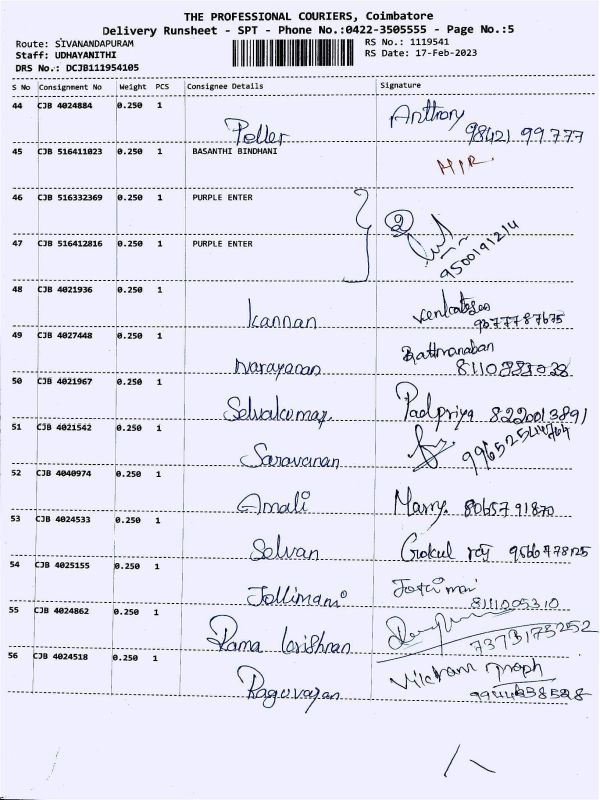 THE PROFESSIONAL COURIERS, Coimbatore
Delivery Runsheet - SPT - Phone No.:0422-3505555 - Page No.:5
Route: SIVANANDAPURAM RS No.: 1119541
Staff: UDHAYANITHI RS Date: 17-Feb-2023
DRS No.: DCJB111954105
S No Consignment No Weight PCS Consignee Details Signature
44 CJB 4024884 0.250 1 Anthony
Peller 98421 99777
45 CJB 516411023 0.250 1 BASANTHI BINDHANI
46 CJB 516332369 0.250 1 PURPLE ENTER 2
47 CJB 516412816 0.250 1 PURPLE ENTER 9500191214
48 CJB 4021936 0.250 1
Kannan 9677787675
49 CJB 4027448 0.250 1
Narayanan
50 CJB 4021967 0.250 1
Selvakumar Padpriya 8220013891
51 CJB 4021542 0.250 1
Saravanan
52 CJB 4040974 0.250 1
Amali Marry 8065791870
53 CJB 4024533 0.250 1
Selvan Gokul raj 9566778125
54 CJB 4025155 0.250 1
Jollimani 8111005310
55 CJB 4024862 0.250 1
Rama krishnan 7373173252
56 CJB 4024518 0.250 1
Raguvaran